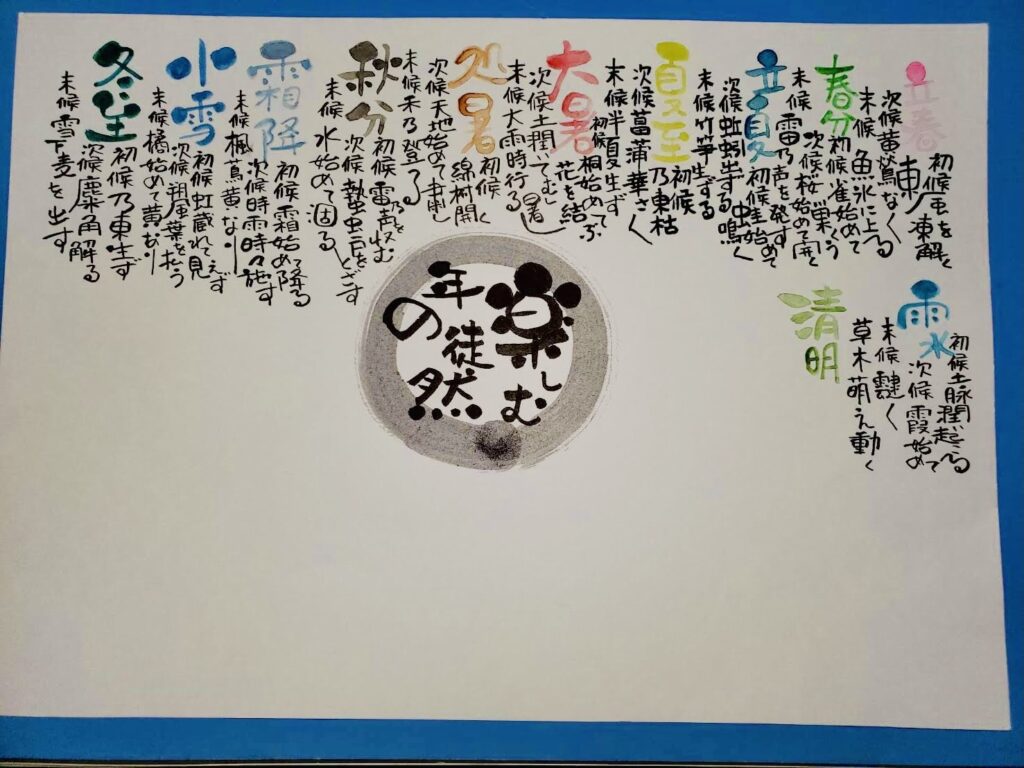 立春
初候東風を凍解く
次候黄鶯なく
末候魚氷に上る
春分
初候雀始めて巣くう
次候桜始めて開く
末候雷乃声を発す
立夏
初候蛙始めて鳴く
次候蚯蚓出ずる
末候竹笋生ずる
夏至
初候乃東枯
次候菖蒲華さく
末候半夏生ず
大暑
初候桐始めて花を結ぶ
次候土潤いてむし暑し
末候大雨時行る
処暑
初候綿柎開く
次候天地始めて粛し
末候禾乃登る
秋分
初候雷乃声を収む
次候蟄虫戸をとざす
末候水始めて涸る
霜降
初候霜始めて降る
次候時雨時々施す
末候楓蔦黄なり
小雪
初候虹蔵れて見えず
次候朔風葉を払う
末候橘始めて黄なり
冬至
初候乃東生ず
次候麋角解る
末候雪下麦を出す
雨水
初候土脉潤い起こる
次候霞始めて
末候
草木萌え動く
清明
楽しむ
年の徒然